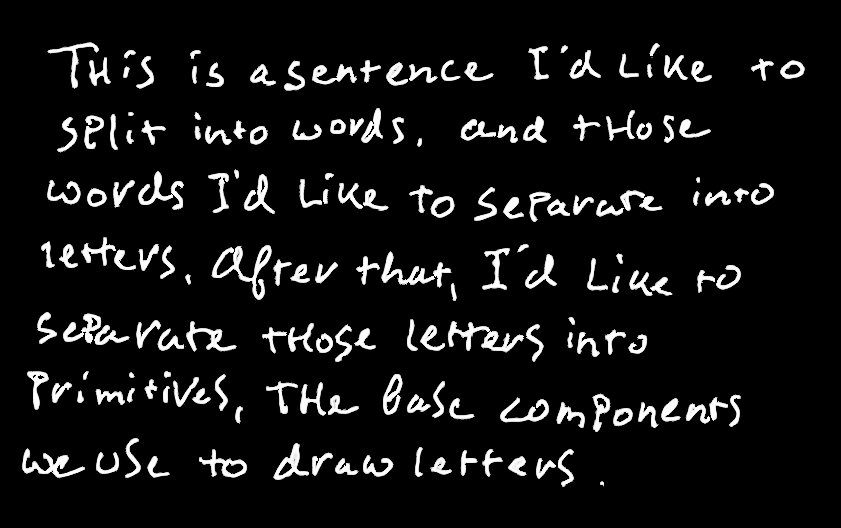 This is a sentence I'd like to
split into words, and those
words I'd like to separate into
letters. After that, I'd like to
separate those letters into
primitives, the base components
we use to draw letters.